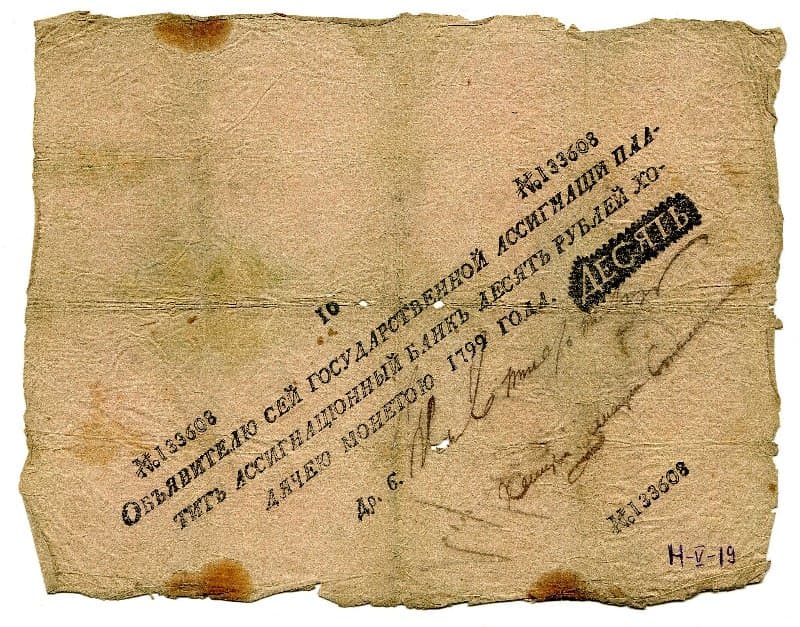 №133608
10
№133608
Объявителю сей государственной ассигнаціи пла-
титъ ассигнаціонный банкъ десять рублей хо-
дячею монетою 1799 года. ДЕСЯТЬ
Др. С.
№133608
Н-V-19